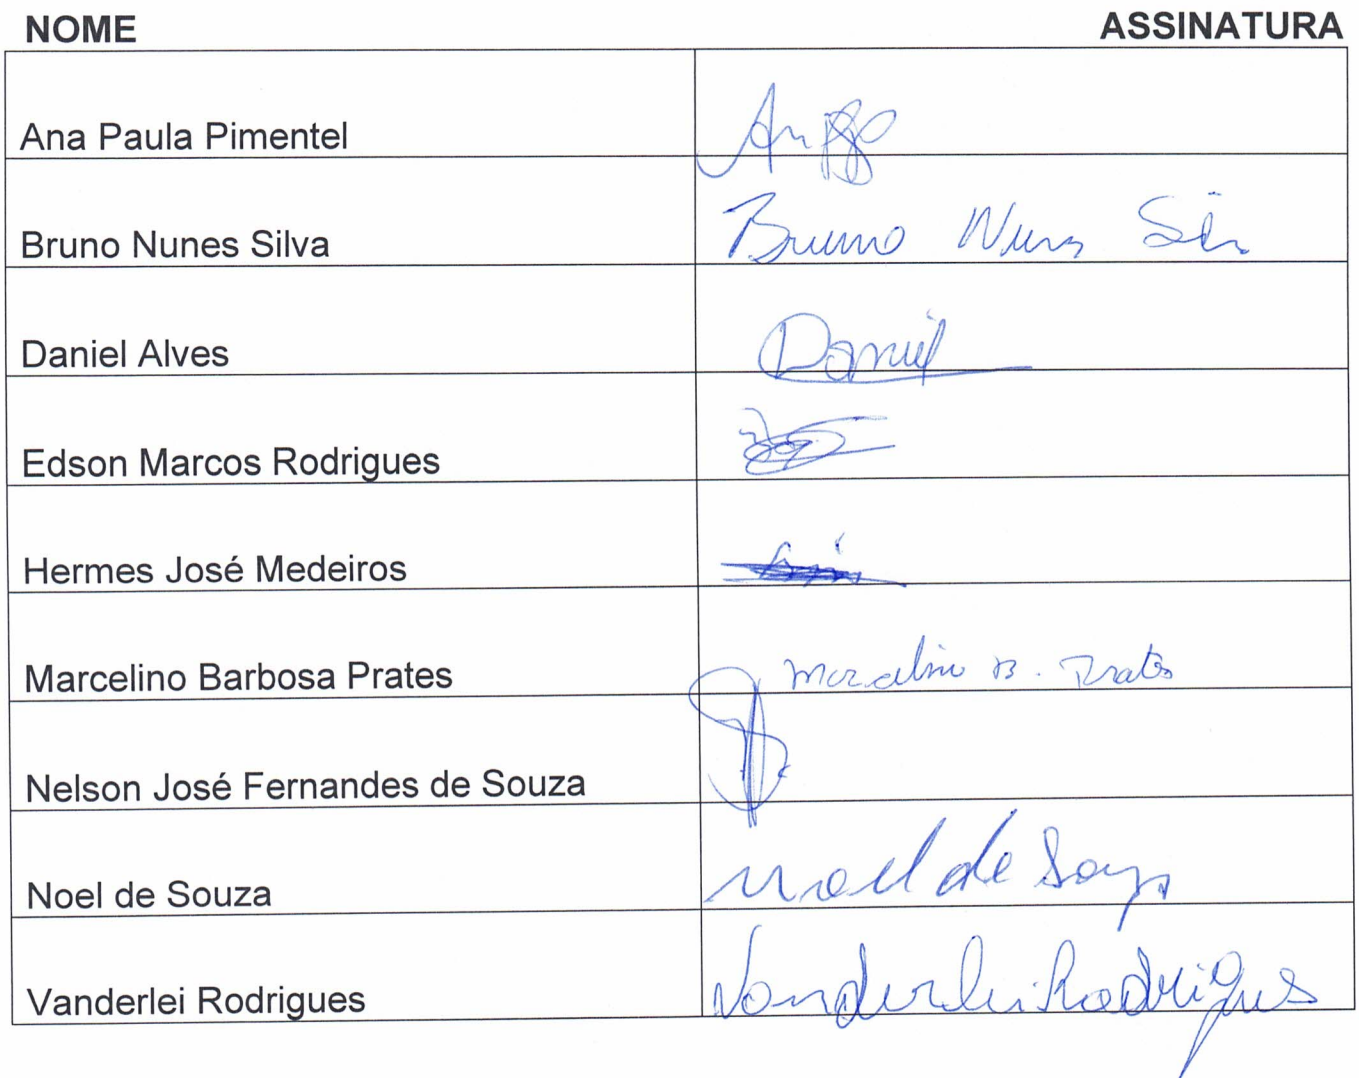 NOME ASSINATURA
Ana Paula Pimentel
Bruno Nunes Silva Bruno Nunes
Daniel Alves Daniel
Edson Marcos Rodrigues
Hermes José Medeiros
Marcelino Barbosa Prates Marcelino B. Prates
Nelson José Fernandes de Souza
Noel de Souza Noel de Souza
Vanderlei Rodrigues Vanderlei Rodrigues